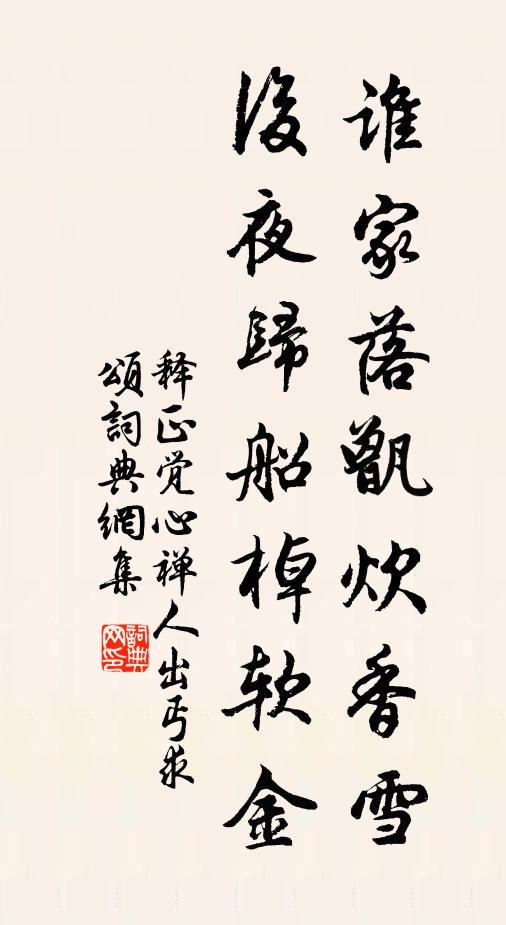 谁家落甑炊香雪
後夜歸船棹软金
释正觉心禅人出丐求
頌詞典網集
詞典
网印